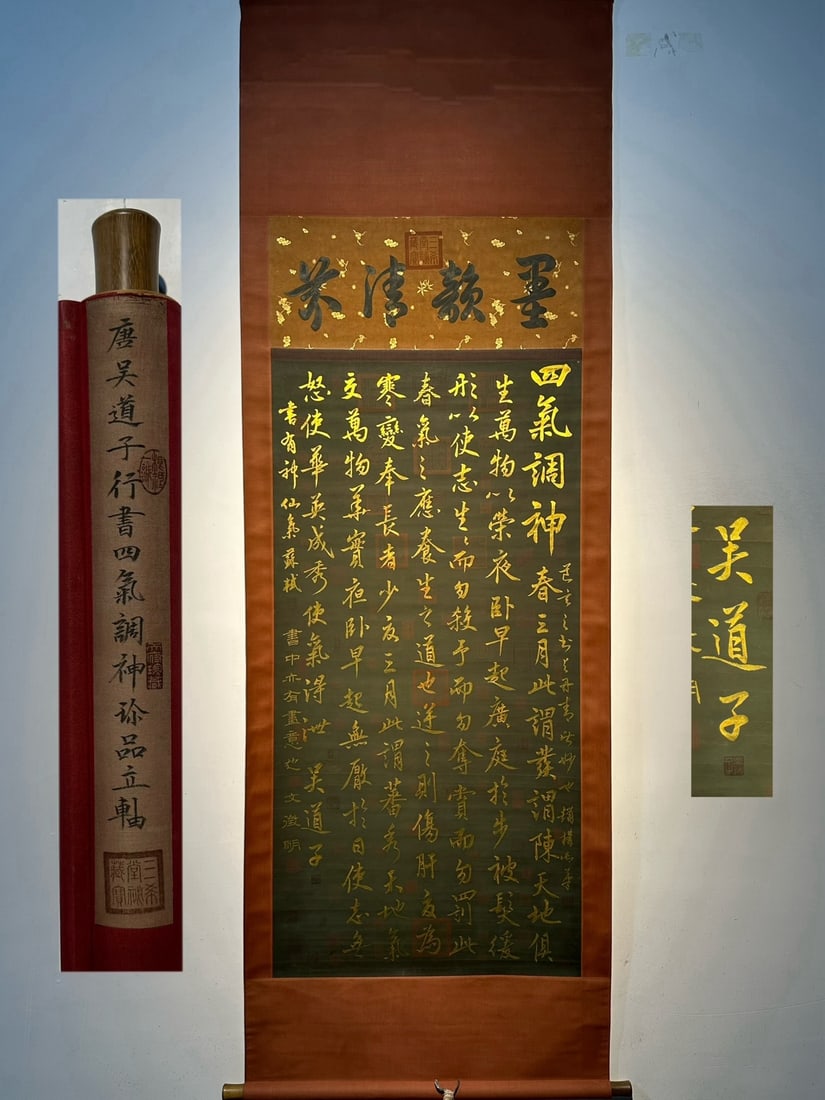 唐吴道子行書四氣調神珍品立軸
墨韻清芬
四氣調神
春三月此謂發謂陳天地俱
生萬物以榮夜卧早起廣庭於步被髮緩
形以使志生生而勿殺予而勿奪賞而勿罰此
春氣之應養生之道也逆之則傷肝夏為
寒變奉長者少夏三月此謂蕃秀天地氣
交萬物華實夜卧早起無厭於日使志無
怒使華英成秀使氣得泄 吴道子
書有神仙氣蘇軾
書中亦有畫意也文徵明
吴道子